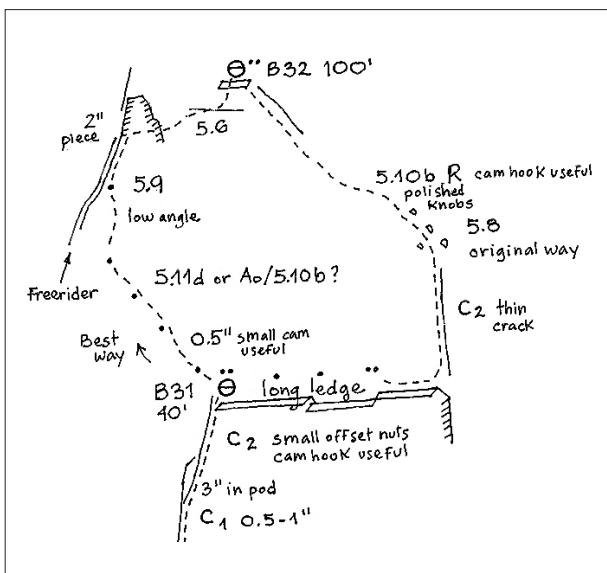 B32 100'
2"
piece
5.6
5.9
low angle
5.10b R cam hook useful
polished
knobs
5.8
original way
Freerider
5.11d or A0/5.10b?
C2 thin
crack
Best
way
0.5" small cam
useful
B31
40'
long ledge
C2 small offset nuts
cam hook useful
3" in pod
C1 0.5-1"